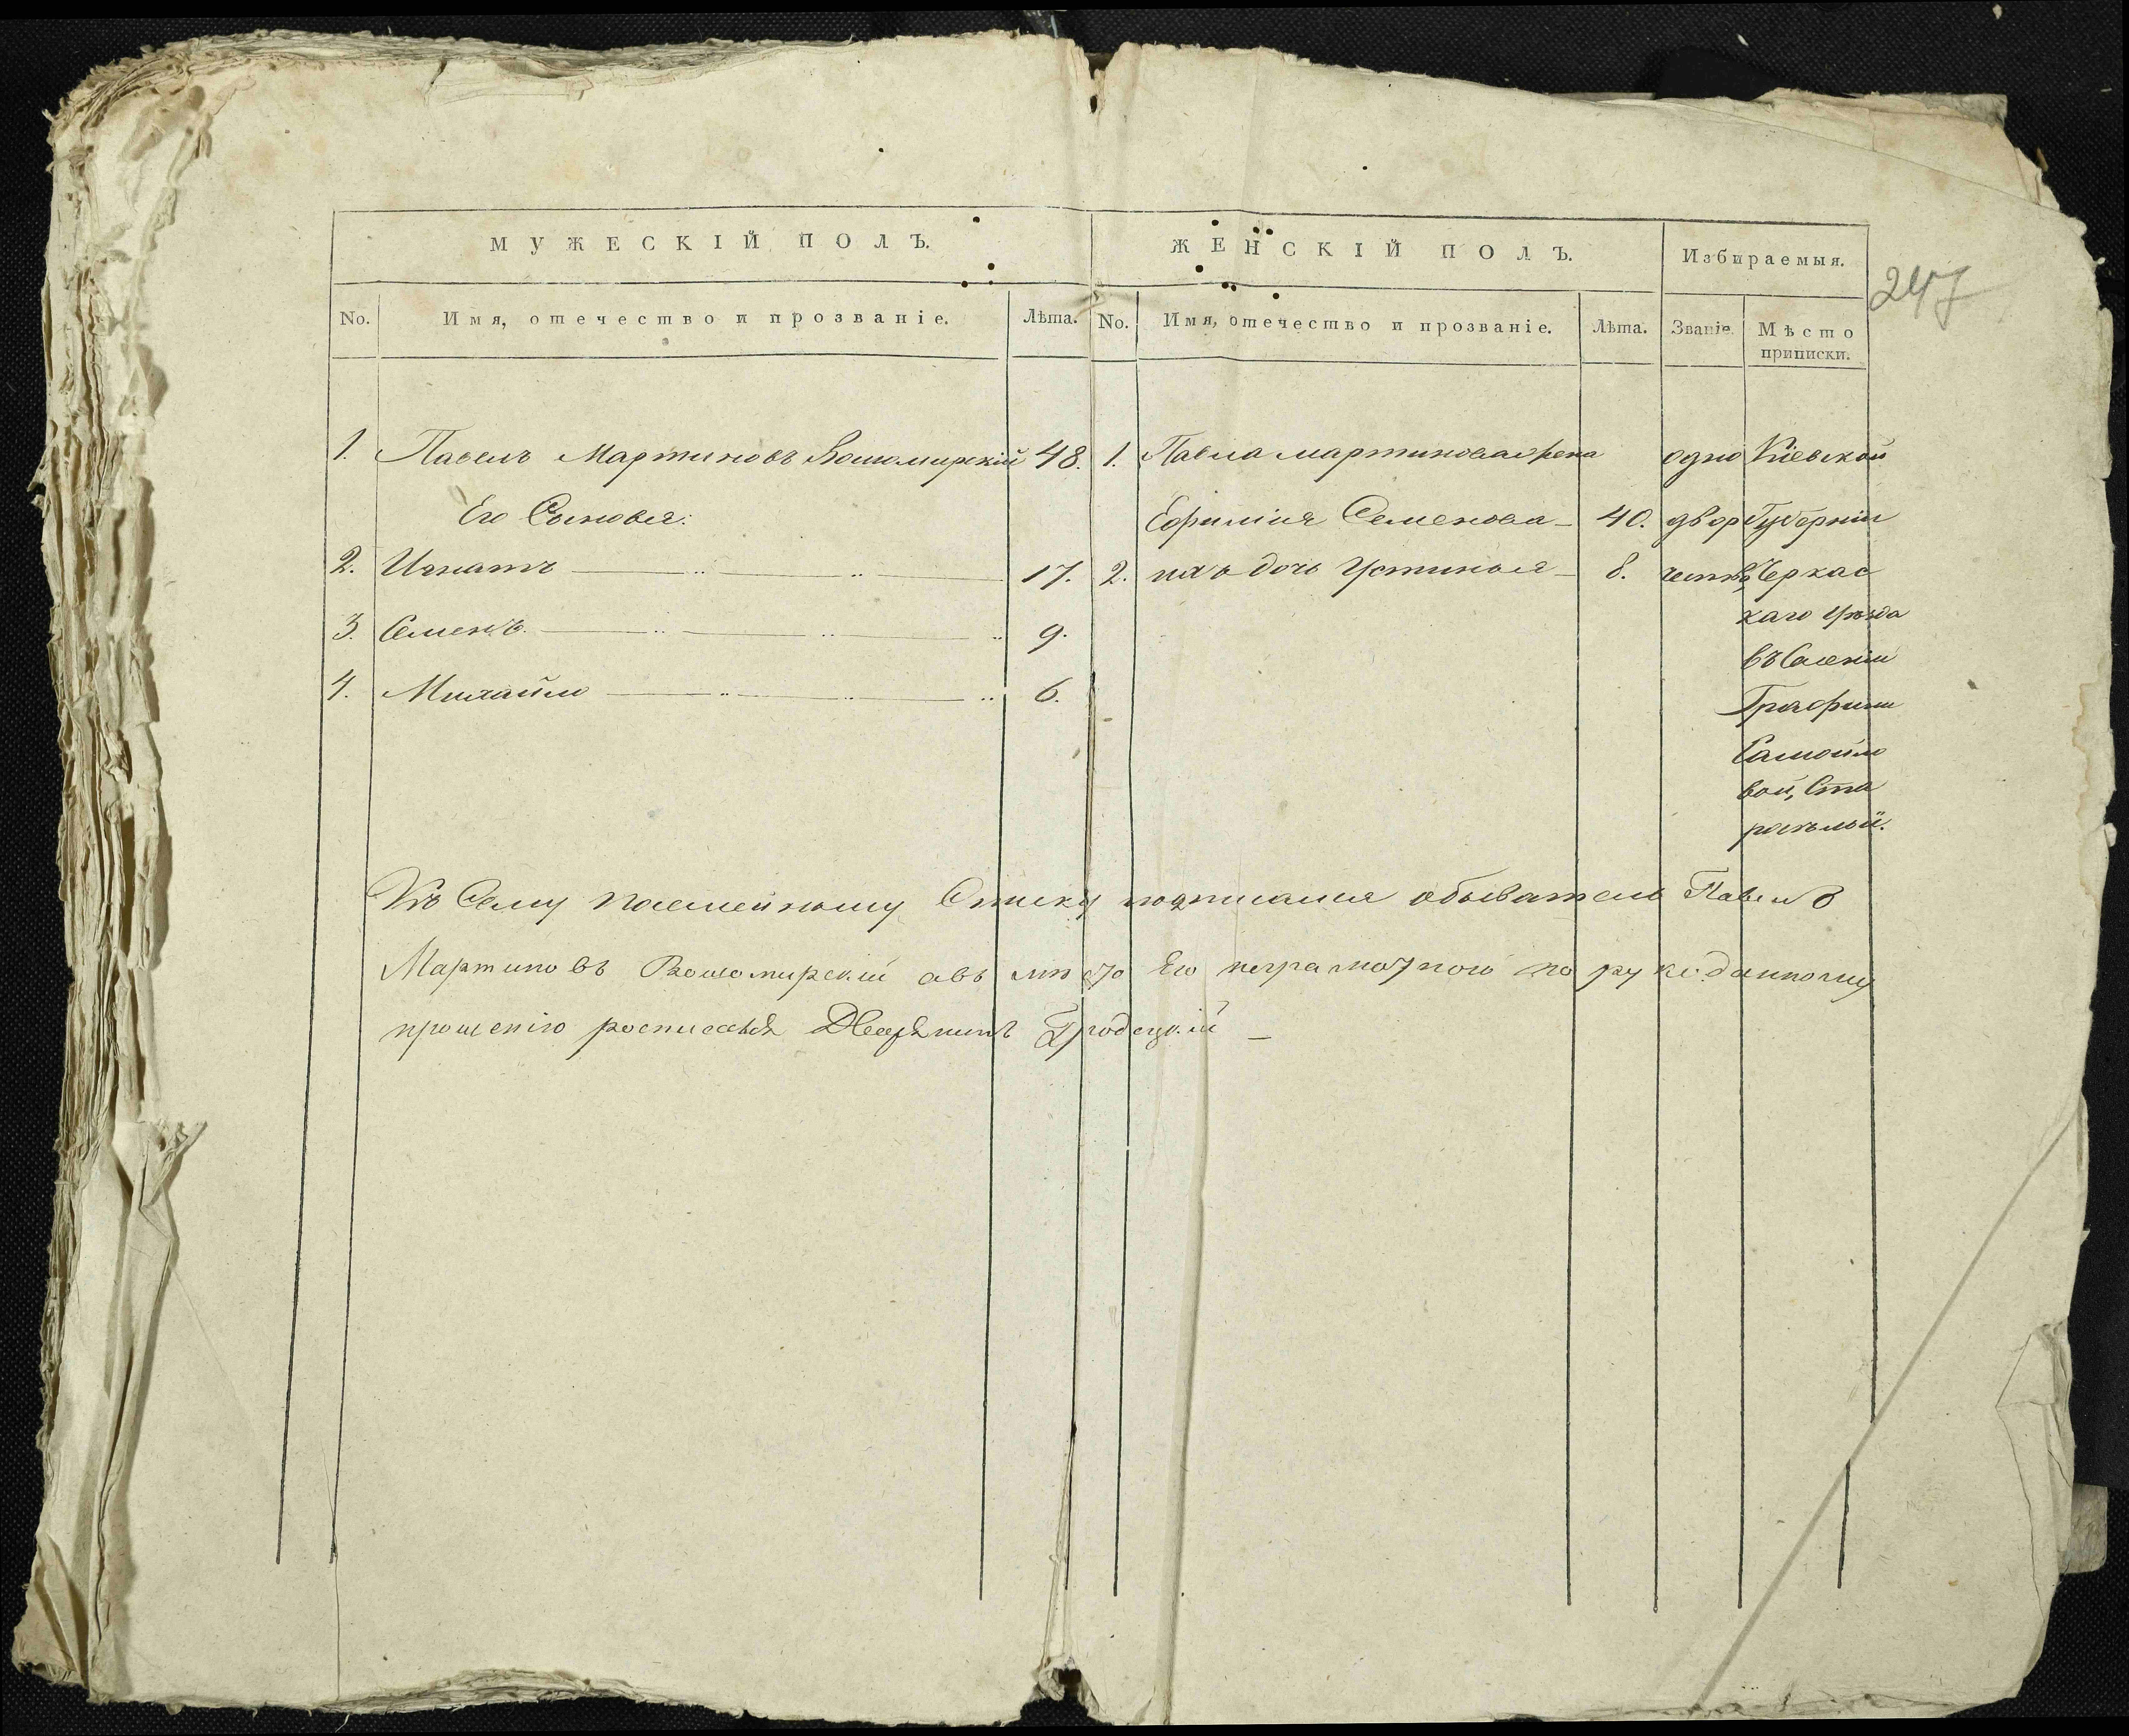 МУЖЕСКІЙ ПОЛЪ.
ЖЕНСКІЙ ПОЛЪ.
Избираемыя.
247
No.
Имя, отечество и прозваніе.
Лѣта.
No.
Имя, отечество и прозваніе.
Лѣта.
Званіе.
Мѣсто
приписки.
1. Павелъ Мартиновъ 48.
Его Сыновья:
2. Игнатъ 17.
3. Семенъ. 9.
4. Михайло 6.
1. Павла мартинова жена
Ефимія Семенова 40.
2. ихъ дочь Устинья 8.
одно
двор
чество,
Кіевской
Губерніи
Черкас
каго уѣзда
въ Селеніи
Графини
Самойло
вой,
Къ Сему посемейному Списку подписался обыватель Павелъ
Мартиновъ Вошомирскій авъ мѣсто Его неграмотного по руко данному
прошенію росписався Дворянинъ Гродецкій